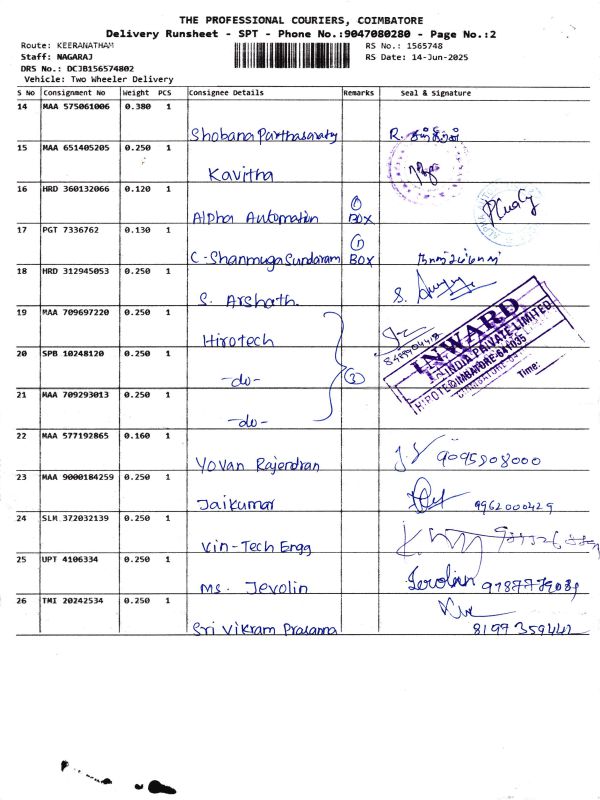 THE PROFESSIONAL COURIERS, COIMBATORE
Delivery Runsheet - SPT - Phone No.:9047080280 - Page No.:2
Route: KEERANATHAM
RS No.: 1565748
Staff: NAGARAJ
RS Date: 14-Jun-2025
DRS No.: DCJB156574802
Vehicle: Two Wheeler Delivery
S No Consignment No Weight PCS Consignee Details Remarks Seal & Signature
14 MAA 575061006 0.380 1
Shobana Parthasaraty R.
15 MAA 651405205 0.250 1
Kavitha
16 HRD 360132066 0.120 1
Alpha Automation ① BOX
17 PGT 7336762 0.130 1
C. Shanmuga Sundaram ① BOX
18 HRD 312945053 0.250 1
S. Arshath. S.
19 MAA 709697220 0.250 1
Hirotech
20 SPB 10248120 0.250 1
-do- ③
21 MAA 709293013 0.250 1
-do-
INWARD
INDIA PRIVATE LIMITED
COIMBATORE-641035
Time:
22 MAA 577192865 0.160 1
Yovan Rajendran 9095908000
23 MAA 9000184259 0.250 1
Jaikumar 9962000429
24 SLM 372032139 0.250 1
Vin-Tech Engg
25 UPT 4106334 0.250 1
Ms. Jevolin Jevolin
26 TMI 20242534 0.250 1
Sri Vikram Prasanna 8199359442